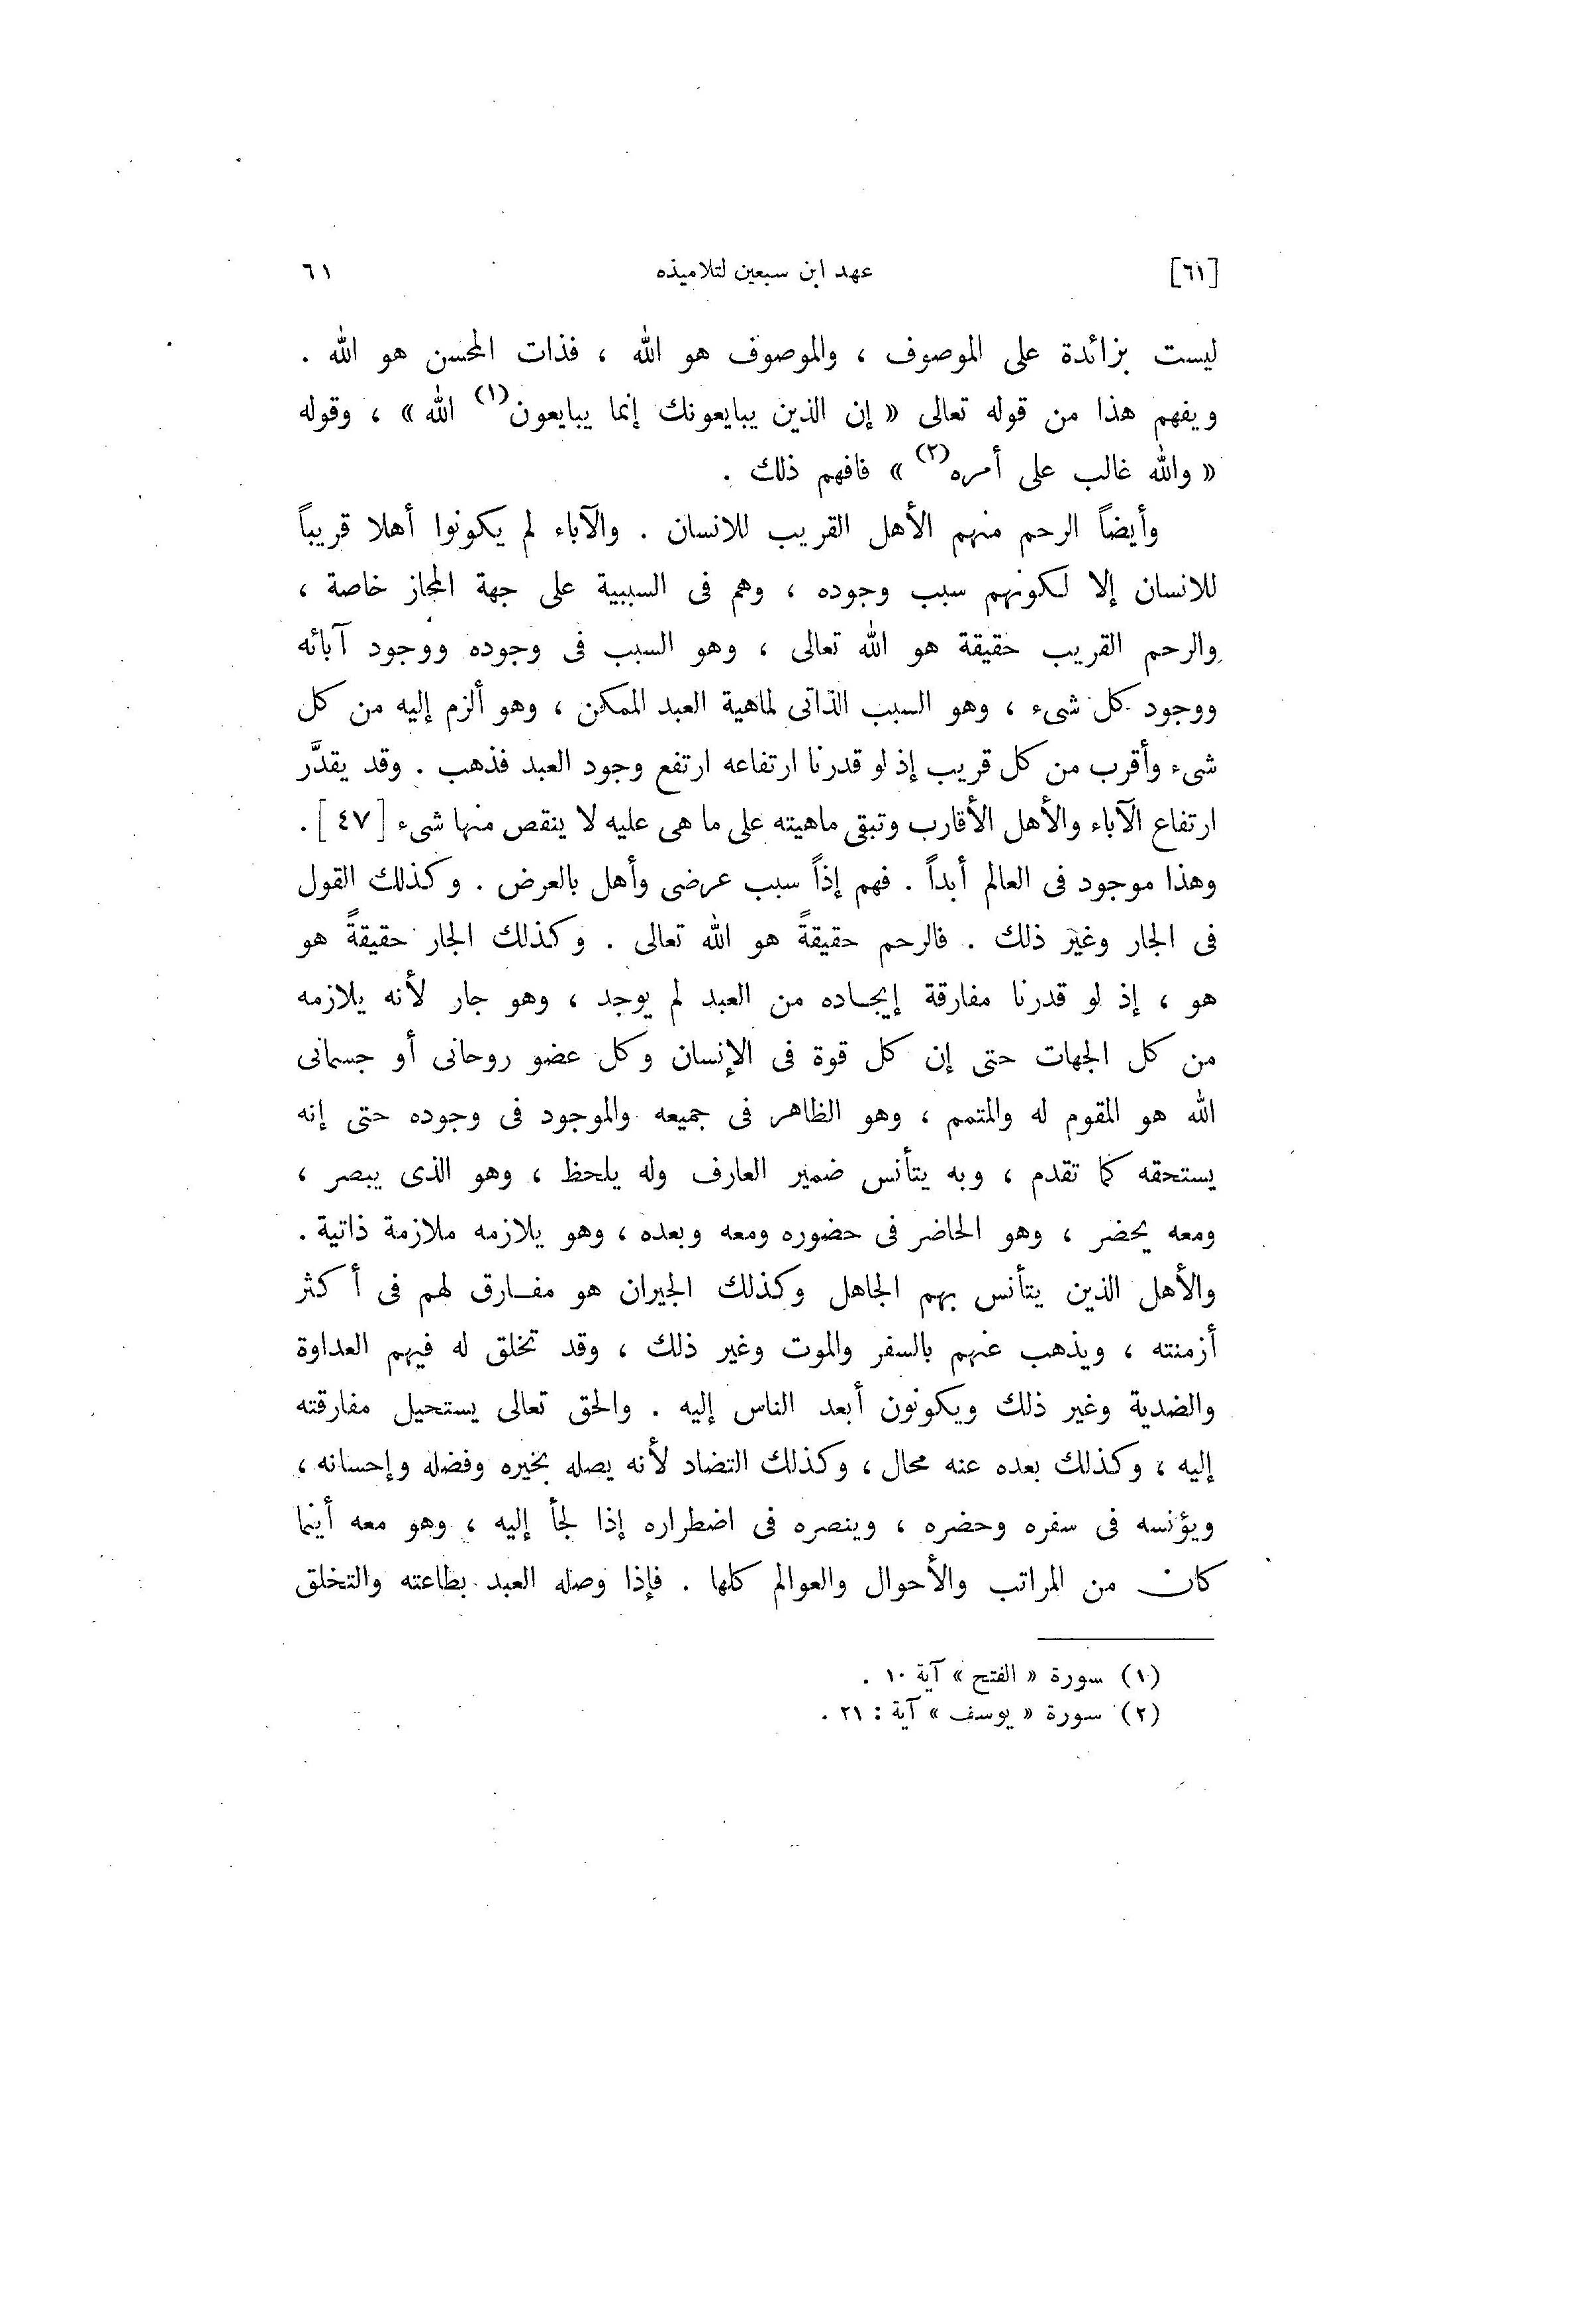 [٦١] عهد ابن سبعين لتلاميذه ٦١
ليست بزائدة على الموصوف ، والموصوف هو الله ، فذات المحسن هو الله .
ويفهم هذا من قوله تعالى « إن الذين يبايعونك إنما يبايعون(١) الله » ، وقوله
« والله غالب على أمره(٢) » فافهم ذلك .
وأيضاً الرحم منهم الأهل القريب للانسان . والآباء لم يكونوا أهلا قريباً
للانسان إلا لكونهم سبب وجوده ، وهم فى السببية على جهة المجاز خاصة ،
والرحم القريب حقيقة هو الله تعالى ، وهو السبب فى وجوده ووجود آبائه
ووجود كل شىء ، وهو السبب الذاتى لماهية العبد الممكن ، وهو ألزم إليه من كل
شىء وأقرب من كل قريب إذ لو قدرنا ارتفاعه ارتفع وجود العبد فذهب . وقد يقدَّر
ارتفاع الآباء والأهل الأقارب وتبقى ماهيته على ما هى عليه لا ينقص منها شىء [ ٤٧ ] .
وهذا موجود فى العالم أبداً . فهم إذاً سبب عرضى وأهل بالعرض . وكذلك القول
فى الجار وغير ذلك . فالرحم حقيقةً هو الله تعالى . وكذلك الجار حقيقةً هو
هو ، إذ لو قدرنا مفارقة إيجاده من العبد لم يوجد ، وهو جار لأنه يلازمه
من كل الجهات حتى إن كل قوة فى الإنسان وكل عضو روحانى أو جسمانى
الله هو المقوم له والمتمم ، وهو الظاهر فى جميعه والموجود فى وجوده حتى إنه
يستحقه كما تقدم ، وبه يتأنس ضمير العارف وله يلحظ ، وهو الذى يبصر ،
ومعه يحضر ، وهو الحاضر فى حضوره ومعه وبعده ، وهو يلازمه ملازمة ذاتية .
والأهل الذين يتأنس بهم الجاهل وكذلك الجيران هو مفارق لهم فى أكثر
أزمنته ، ويذهب عنهم بالسفر والموت وغير ذلك ، وقد تخلق له فيهم العداوة
والضدية وغير ذلك ويكونون أبعد الناس إليه . والحق تعالى يستحيل مفارقته
إليه ، وكذلك بعده عنه محال ، وكذلك التضاد لأنه يصله بخيره وفضله وإحسانه ،
ويؤنسه فى سفره وحضره ، وينصره فى اضطراره إذا لجأ إليه ، وهو معه أينما
كان من المراتب والأحوال والعوالم كلها . فإذا وصله العبد بطاعته والتخلق
(١) سورة « الفتح » آية ١٠ .
(٢) سورة « يوسف » آية : ٢١ .